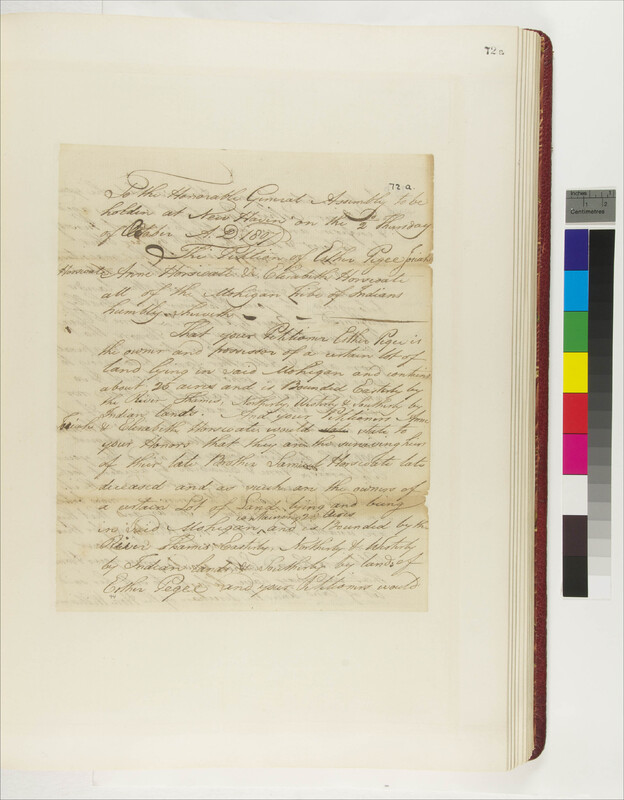 72a
72.a.
To the Honorable General Assembly to be
holden at New Haven on the 2d Thursday
of October A.D. 180
The Petition of Esther Pegee
Anne Horscate & Elizabeth Horscate
all of the Mohigan Tribe of Indians
humbly sheweth
That your Petitioner Esther Pegee is
the owner and possessor of a certain lot of
land lying in said Mohigan and contains
about 26 acres and is Bounded Easterly by
the River Thames, Northerly, Westerly & Southerly by
Indian lands. And your Petitioners Ann
& Elizabeth Horscate would state to
your Honors that they are the surviving heirs
of their late Brother Samuel Horscate late
deceased and as such are the owners of
a certain Lot of Land lying and being
in said Mohigan, and is Bounded by the
River Thames Easterly, Northerly & Westerly
by Indian lands & Southerly by lands of
Esther Pegee and your Petitioners would
inches
1
2
Centimetres